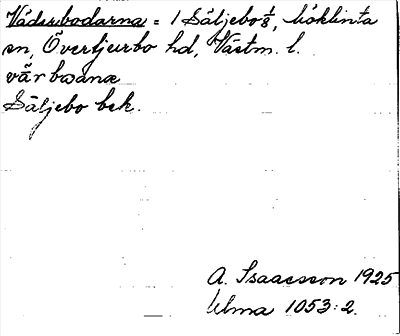 Väderbodarna = 1 Säljebo 1/8, Möklinta
sn, Övertjurbo hd, Västm. l.
vä̆rbωanæ
Säljebo bek.
A. Isaacsson 1925
Ulma 1053:2.